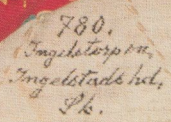 780.
Ingelstorpen
Ingelstads hd,
Sk.